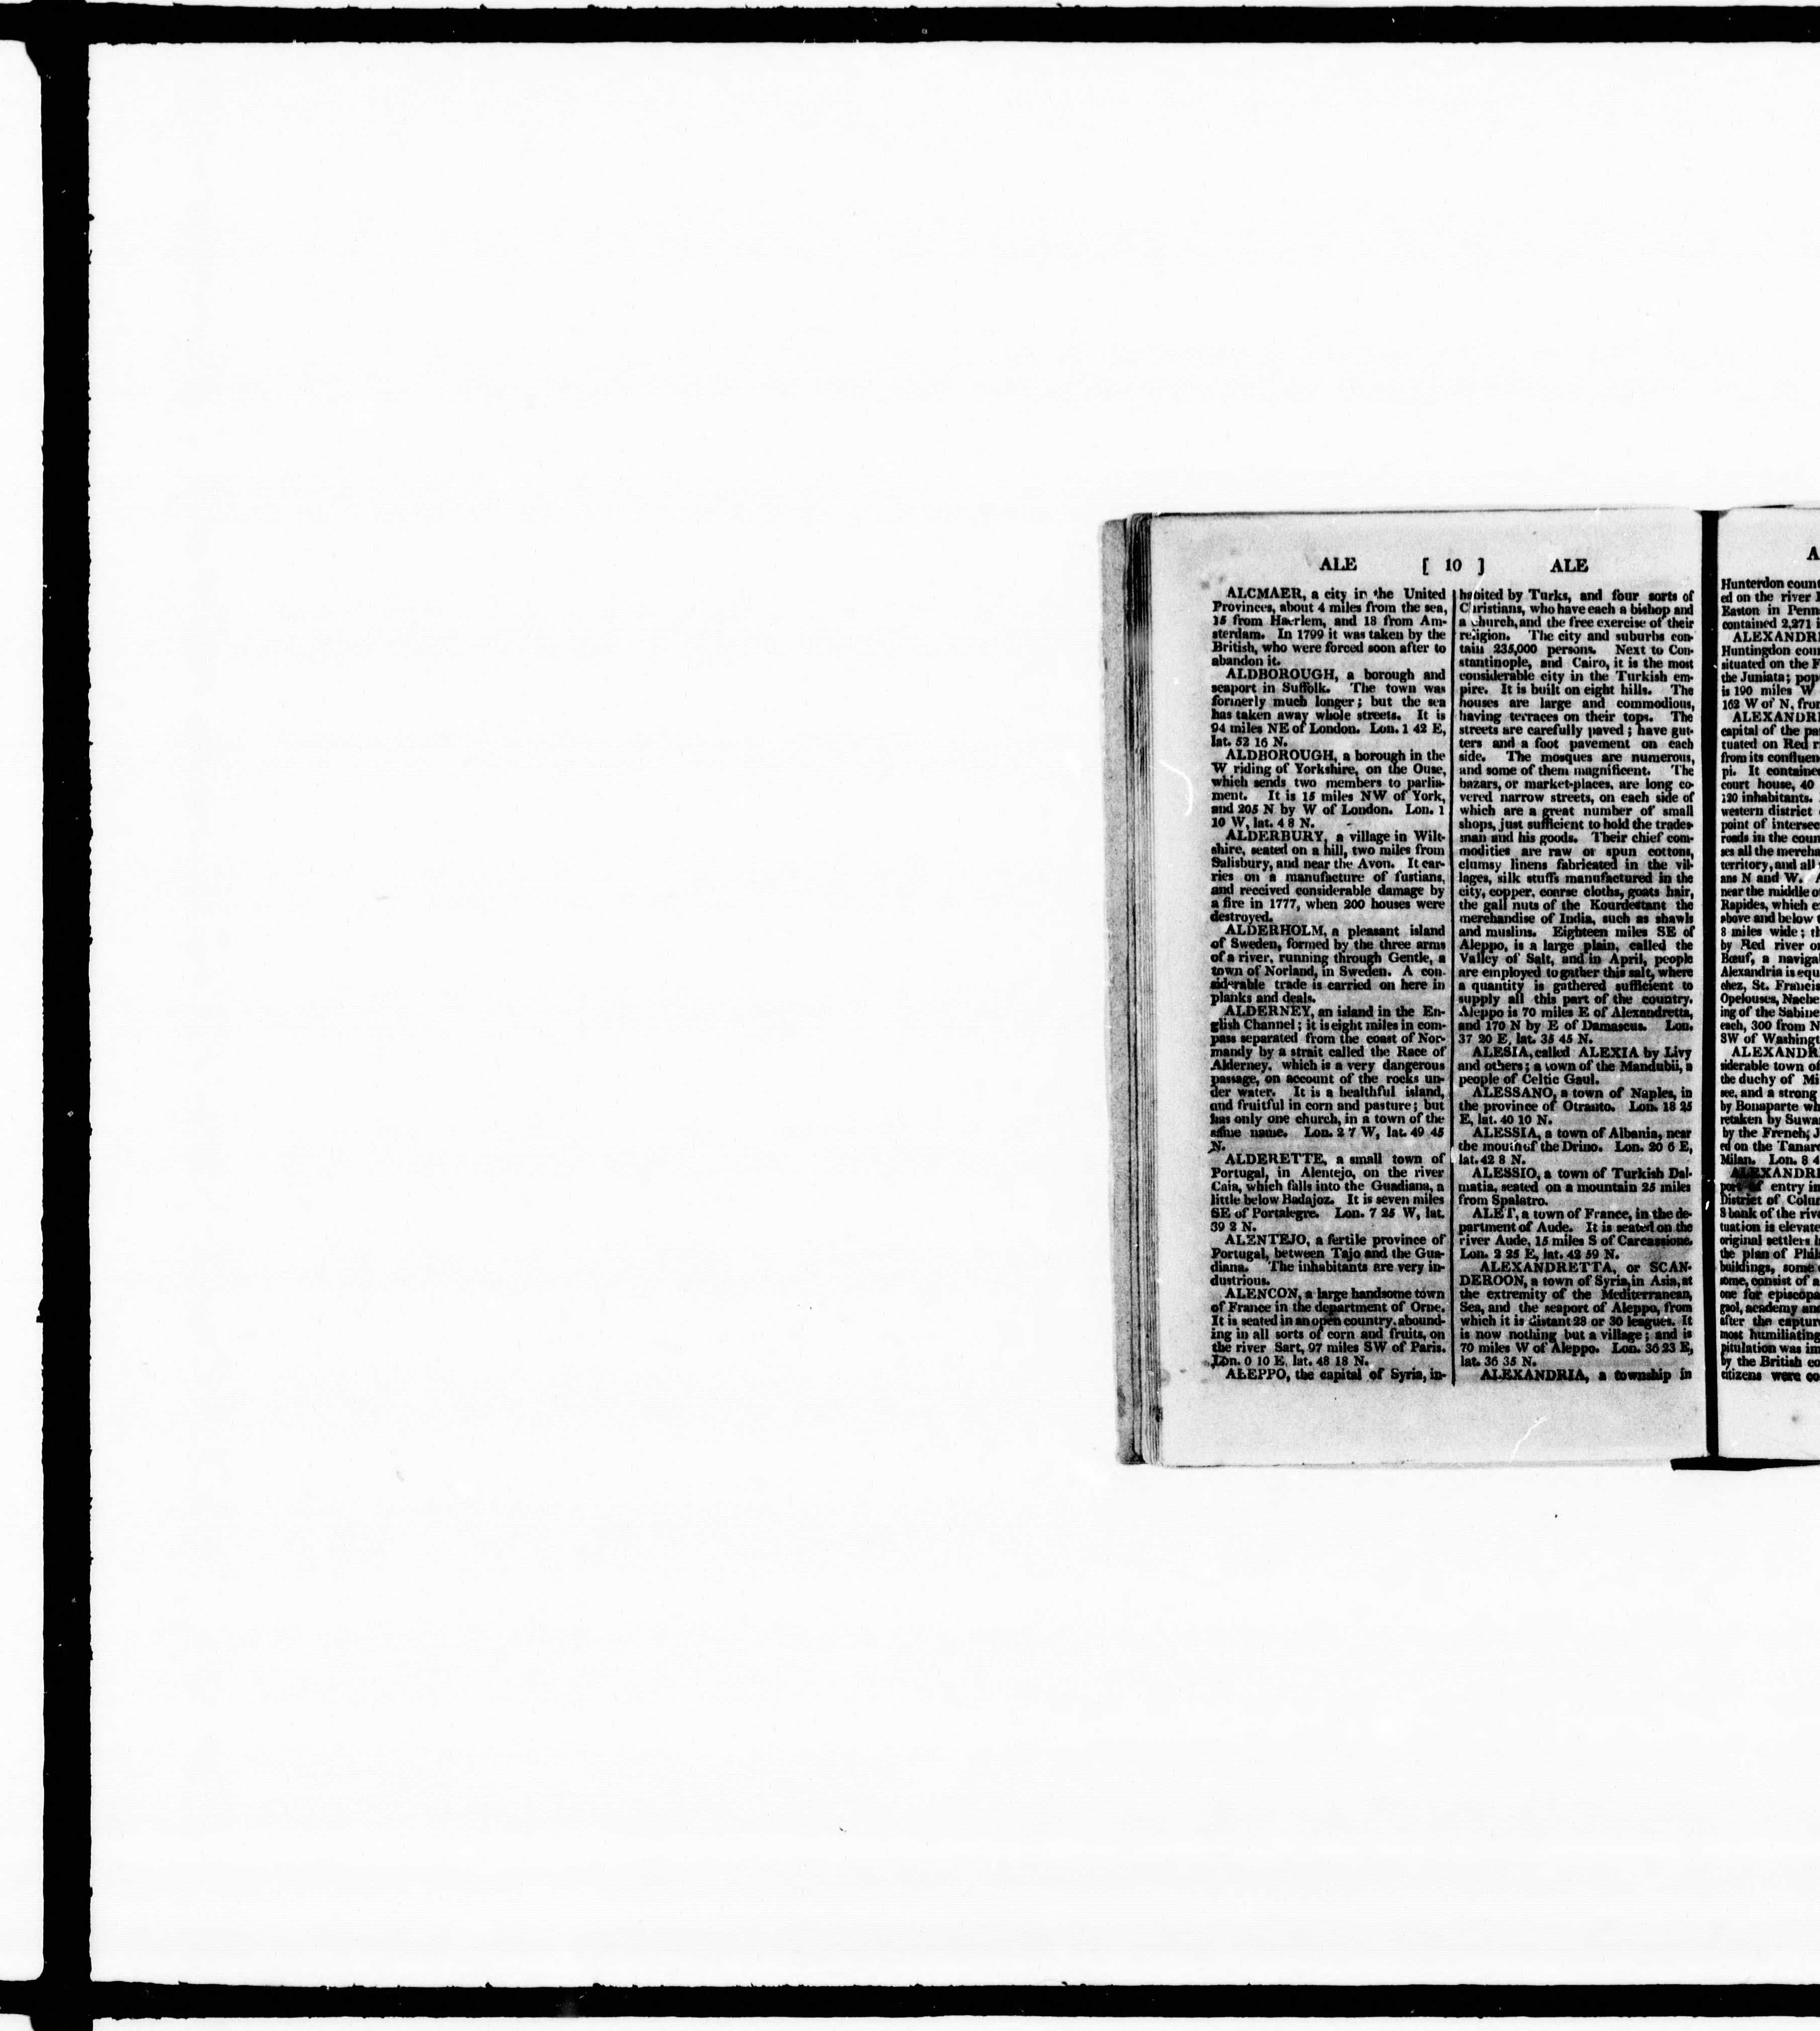 ALE [ 10 ] ALE
ALCMAER, a city in the United
Provinces, about 4 miles from the sea,
15 from Haerlem, and 18 from Am-
sterdam. In 1799 it was taken by the
British, who were forced soon after to
abandon it.
ALDBOROUGH, a borough and
seaport in Suffolk. The town was
formerly much longer; but the sea
has taken away whole streets. It is
94 miles NE of London. Lon. 1 42 E,
lat. 52 16 N.
ALDBOROUGH, a borough in the
W riding of Yorkshire, on the Ouse,
which sends two members to parlia-
ment. It is 15 miles NW of York,
and 205 N by W of London. Lon. 1
10 W, lat. 4 8 N.
ALDERBURY, a village in Wilt-
shire, seated on a hill, two miles from
Salisbury, and near the Avon. It car-
ries on a manufacture of fustians,
and received considerable damage by
a fire in 1777, when 200 houses were
destroyed.
ALDERHOLM, a pleasant island
of Sweden, formed by the three arms
of a river, running through Gentle, a
town of Norland, in Sweden. A con-
siderable trade is carried on here in
planks and deals.
ALDERNEY, an island in the En-
glish Channel; it is eight miles in com-
pass separated from the coast of Nor-
mandy by a strait called the Race of
Alderney, which is a very dangerous
passage, on account of the rocks un-
der water. It is a healthful island,
and fruitful in corn and pasture; but
has only one church, in a town of the
same name. Lon. 2 7 W, lat. 49 45
N.
ALDERETTE, a small town of
Portugal, in Alentejo, on the river
Caia, which falls into the Guadiana, a
little below Badajoz. It is seven miles
SE of Portalegre. Lon. 7 25 W, lat.
39 2 N.
ALENTEJO, a fertile province of
Portugal, between Tajo and the Gua-
diana. The inhabitants are very in-
dustrious.
ALENCON, a large handsome town
of France in the department of Orne.
It is seated in an open country, abound-
ing in all sorts of corn and fruits, on
the river Sart, 97 miles SW of Paris.
Lon. 0 10 E, lat. 48 18 N.
ALEPPO, the capital of Syria, in-
habited by Turks, and four sorts of
Christians, who have each a bishop and
a church, and the free exercise of their
religion. The city and suburbs con-
tain 235,000 persons. Next to Con-
stantinople, and Cairo, it is the most
considerable city in the Turkish em-
pire. It is built on eight hills. The
houses are large and commodious,
having terraces on their tops. The
streets are carefully paved; have gut-
ters and a foot pavement on each
side. The mosques are numerous,
and some of them magnificent. The
bazars, or market-places, are long co-
vered narrow streets, on each side of
which are a great number of small
shops, just sufficient to hold the trades-
man and his goods. Their chief com-
modities are raw or spun cottons,
clumsy linens fabricated in the vil-
lages, silk stuffs manufactured in the
city, copper, coarse cloths, goats hair,
the gall nuts of the Kourdestant the
merchandise of India, such as shawls
and muslins. Eighteen miles SE of
Aleppo, is a large plain, called the
Valley of Salt, and in April, people
are employed to gather this salt, where
a quantity is gathered sufficient to
supply all this part of the country.
Aleppo is 70 miles E of Alexandretta,
and 170 N by E of Damascus. Lon.
37 20 E, lat. 35 45 N.
ALESIA, called ALEXIA by Livy
and others; a town of the Mandubii, a
people of Celtic Gaul.
ALESSANO, a town of Naples, in
the province of Otranto. Lon. 18 25
E, lat. 40 10 N.
ALESSIA, a town of Albania, near
the mouth of the Drino. Lon. 20 6 E,
lat. 42 8 N.
ALESSIO, a town of Turkish Dal-
matia, seated on a mountain 25 miles
from Spalatro.
ALET, a town of France, in the de-
partment of Aude. It is seated on the
river Aude, 15 miles S of Carcassione.
Lon. 2 25 E, lat. 42 59 N.
ALEXANDRETTA, or SCAN-
DEROON, a town of Syria, in Asia, at
the extremity of the Mediterranean,
Sea, and the seaport of Aleppo, from
which it is distant 28 or 30 leagues. It
is now nothing but a village; and is
70 miles W of Aleppo. Lon. 36 23 E,
lat. 36 35 N.
ALEXANDRIA, a township in
A
Hunterdon
ed on the river
Easton in
contained 2,271
Huntingdon
situated on the
the Juniata;
is 190 miles W
162 W of N,
capital of the
tuated on Red
from its
pi. It
court house, 40
120 inhabitants.
western district
point of
roads in the
ses all the
territory, and all
ans N and W.
near the middle
Rapides, which
above and below
8 miles wide;
by Red river
Bœuf, a
Alexandria is
chez, St.
Opelouses,
ing of the Sabine
each, 300 from
SW of
siderable town of
the duchy of
see, and a strong
by Bonaparte
retaken by
by the French;
ed on the
Milan. Lon. 8
port of entry
District of
S bank of the
tuation is
original settlers
the plan of
buildings, some
some, consist of
one for
gaol, academy
after the
most humiliating
pitulation was
by the British
citizens were